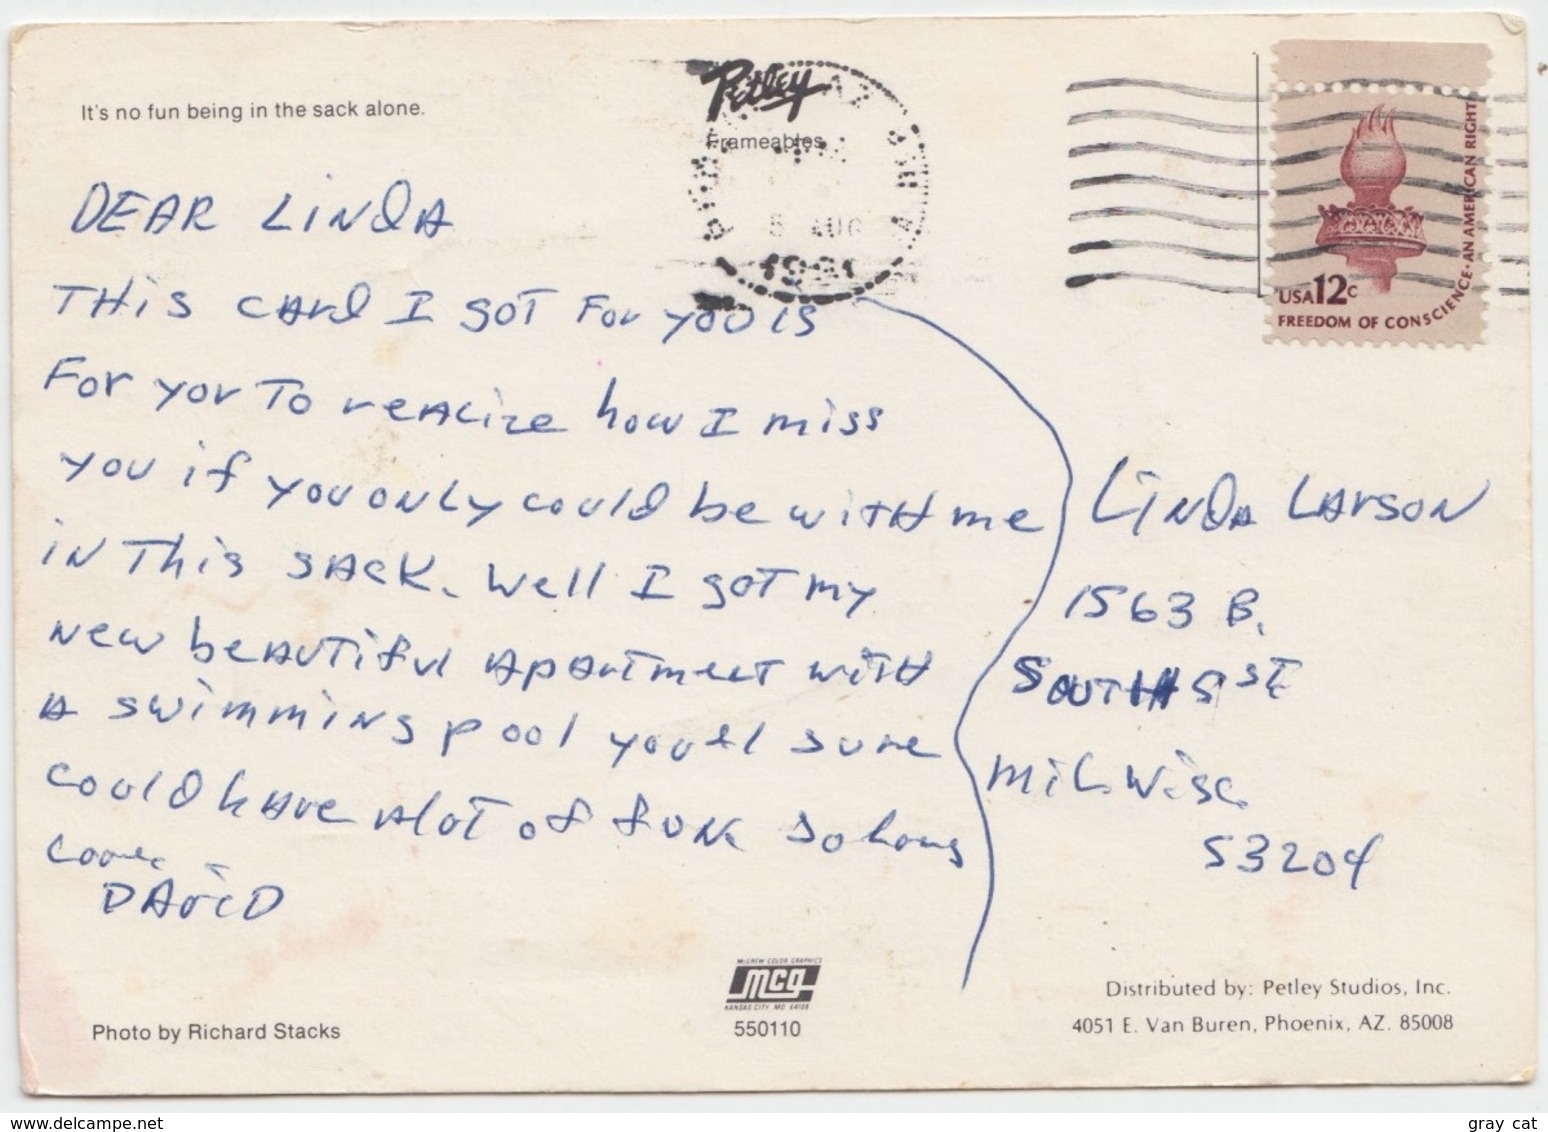 It's no fun being in the sack alone.
Petley
Frameables
AZ
5 AUG
1981
USA 12c
FREEDOM OF CONSCIENCE · AN AMERICAN RIGHT
DEAR LINDA
THIS CARD I GOT FOR YOU IS
FOR YOU TO REALIZE how I miss
you if you only could be with me
in This SACK. Well I got my
New beautiful Apartment with
A swimming pool you'll sure
could have Alot of fun. So Long
DAVID
LINDA LARSON
1563 B.
SOUTH ST
Mil. Wisc.
53204
McGREW COLOR GRAPHICS
mcg
KANSAS CITY, MO. 64108
550110
Photo by Richard Stacks
Distributed by: Petley Studios, Inc.
4051 E. Van Buren, Phoenix, AZ. 85008
www.delcampe.net
gray_cat